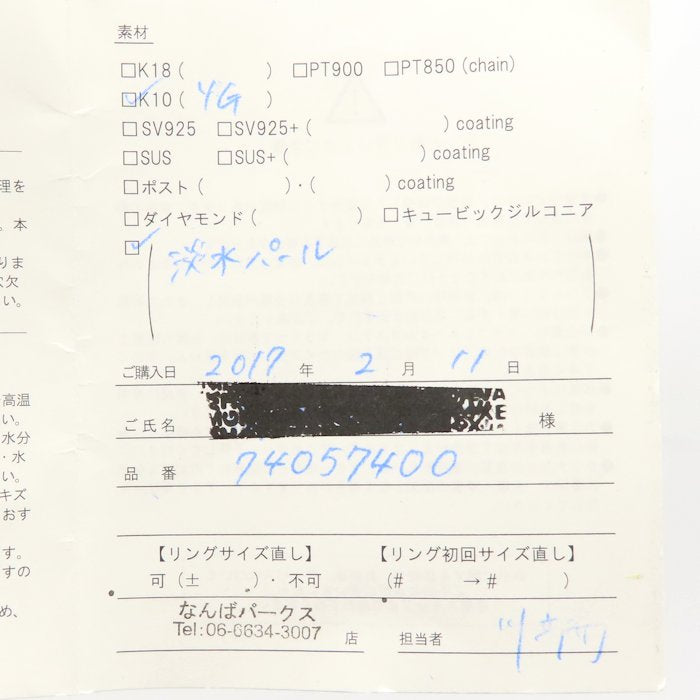 理を
。本
りま
欠
い。
高温
い。
水分
・水
い。
キズ
おす
す。
すの
め、
素材
□K18 ( ) □PT900 □PT850 (chain)
☑K10 ( YG )
□SV925 □SV925+ ( ) coating
□SUS □SUS+ ( ) coating
□ポスト ( )・( ) coating
□ダイヤモンド ( ) □キュービックジルコニア
☑ ( 淡水パール )
ご購入日 2017 年 2 月 11 日
ご氏名 様
品番 74057400
【リングサイズ直し】 【リング初回サイズ直し】
可 (± )・不可 (# →# )
なんばパークス
Tel:06-6634-3007 店 担当者